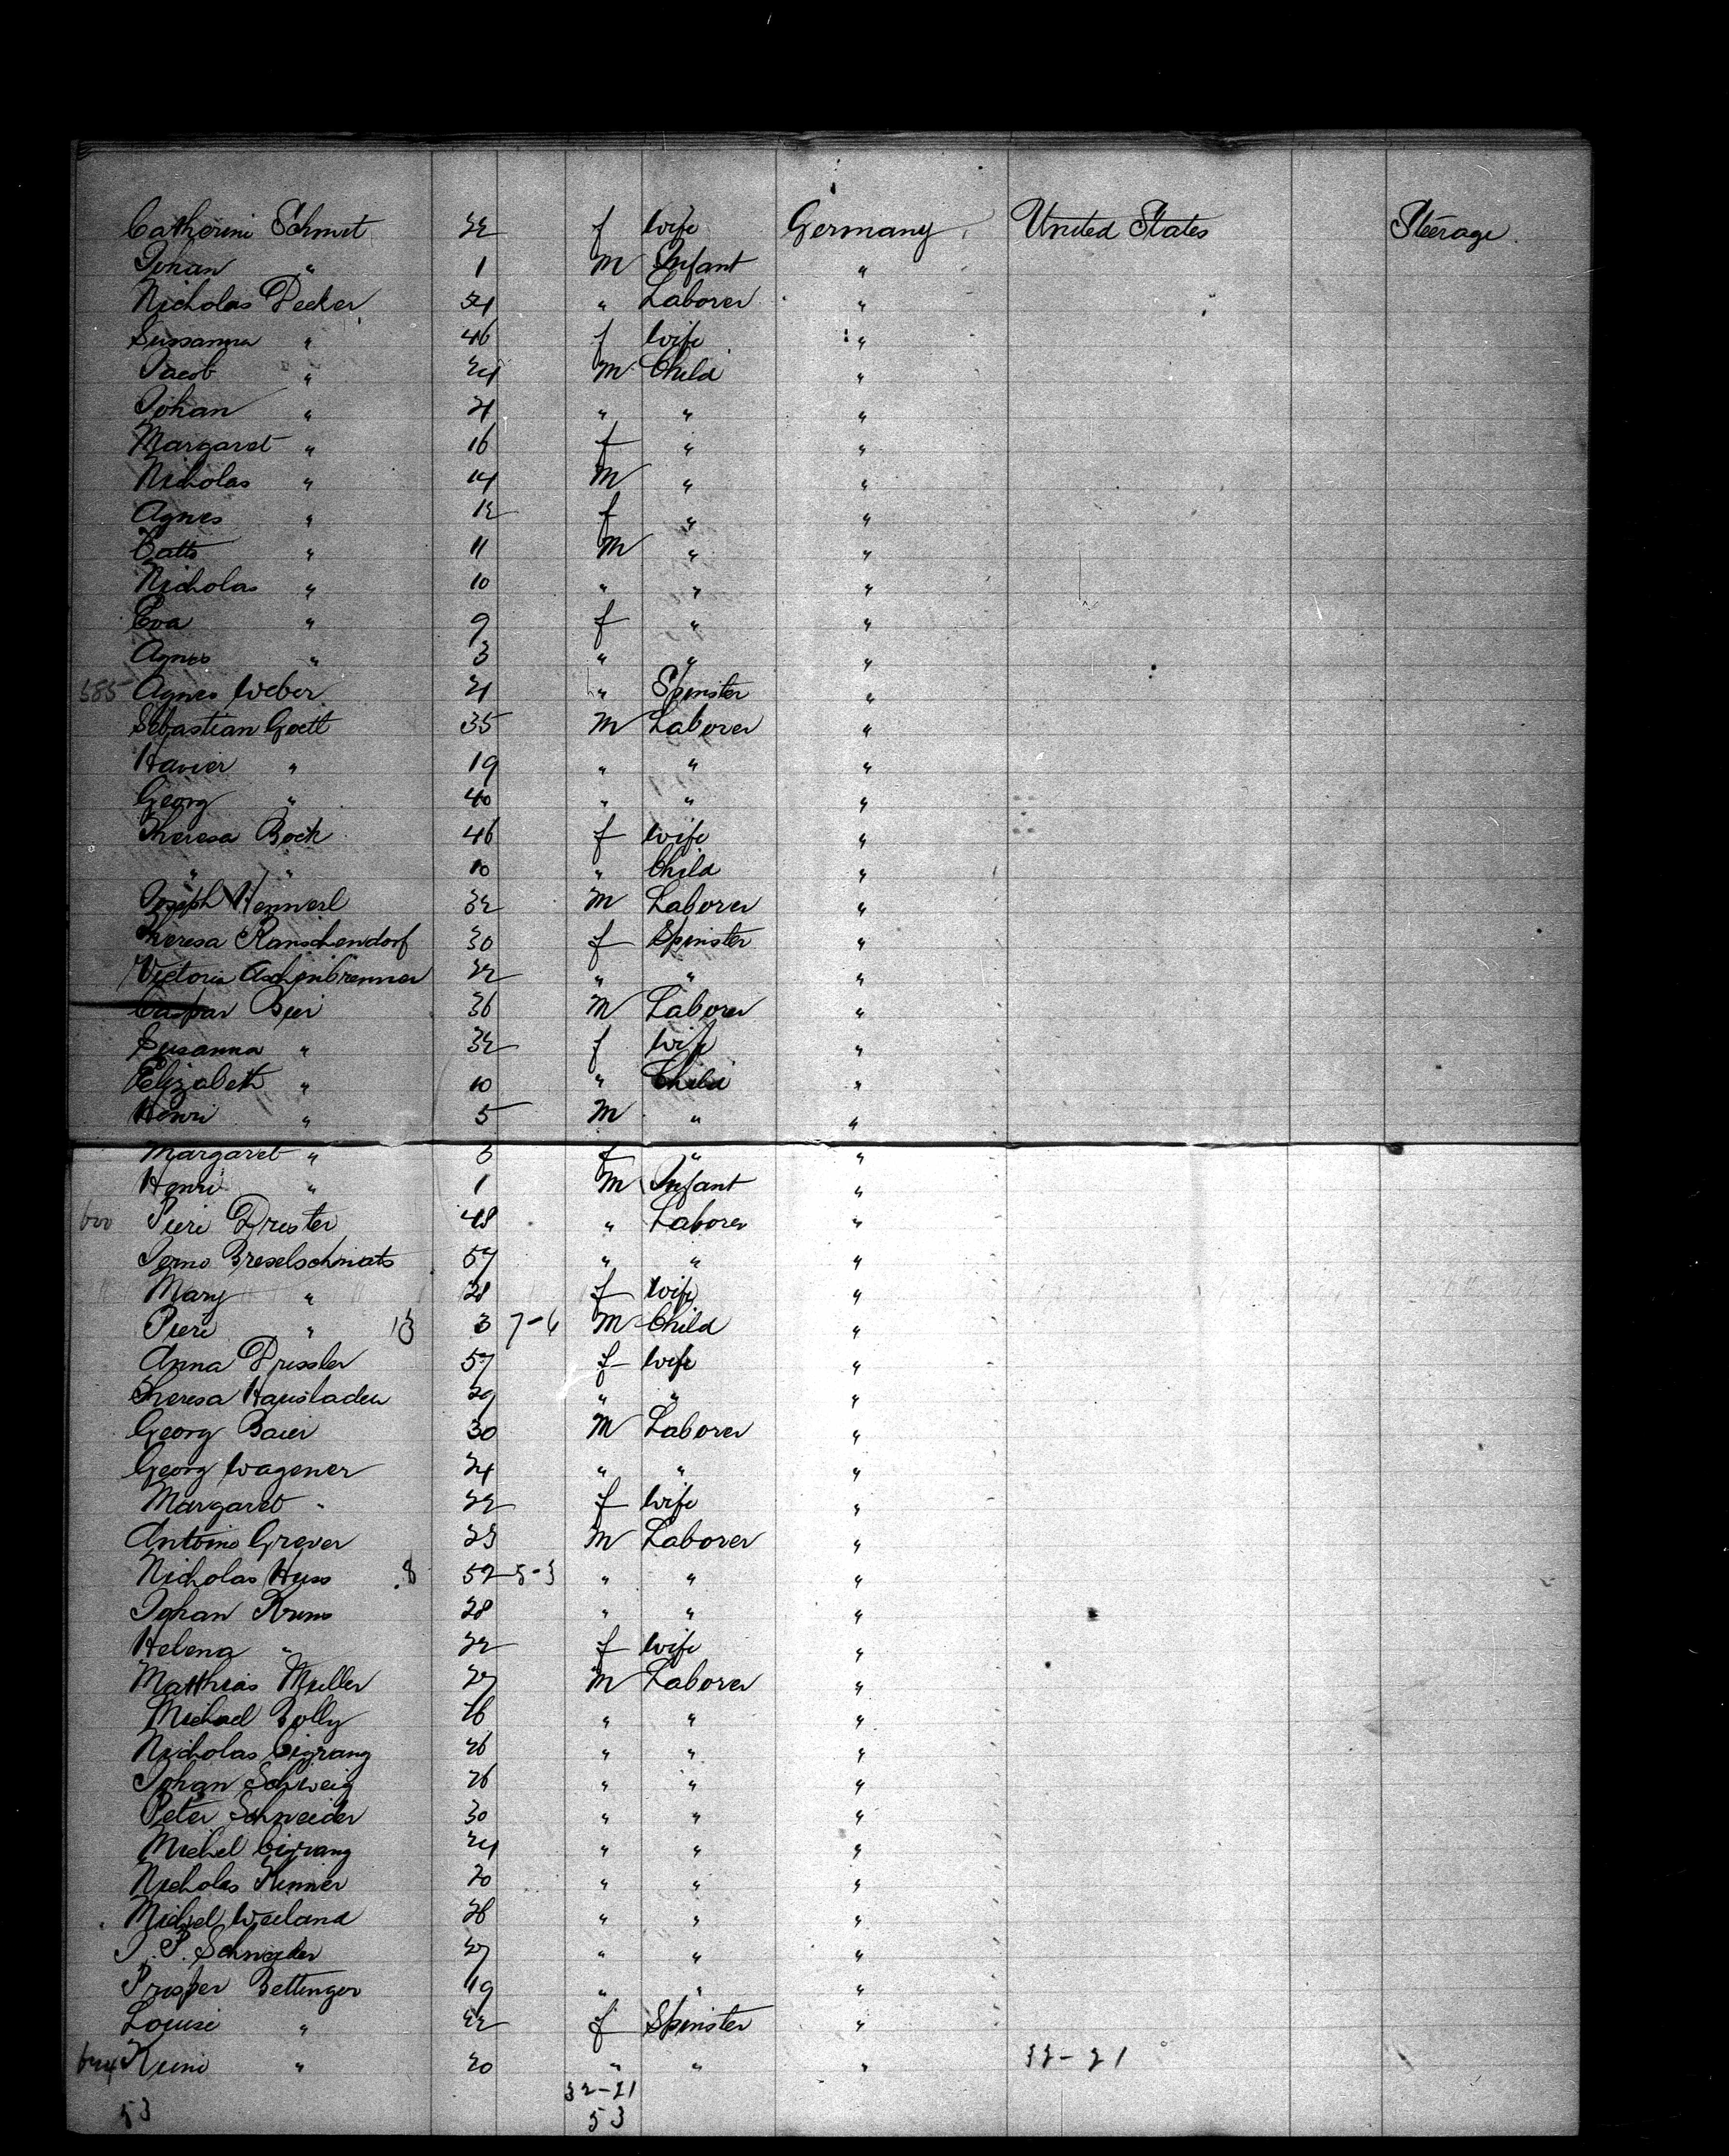 Catherine Schmit 22 f wife Germany United States Steerage
Johan " 1 M Infant "
Nicholas Decker 54 " Laborer "
Sussanna " 46 f wife "
Jacob " 24 M Child "
Johan " 21 " " "
Margaret " 16 f " "
Nicholas " 14 M " "
Agnes " 12 f " "
Catts " 11 M " "
Nicholas " 10 " " "
Eva " 9 f " "
Agnes " 3 " " "
585 Agnes Weber 21 " Spinster "
Sebastian Goett 35 M Laborer "
Xavier " 19 " " "
Georg " 40 " " "
Theresa Bock 46 f wife "
" " 10 " Child "
Joseph Hennerl 32 M Laborer "
Theresa Ranschendorf 30 f Spinster "
Victoria Aschinbrenner 22 " " "
Caspar Beri 36 M Laborer "
Susanna " 32 f wife "
Elizabeth " 10 " Child "
Henri " 5 M " "
Margaret " 3 f " "
Henri " 1 M Infant "
600 Pieri Drister 48 " Laborer "
Breselschmats 57 " " "
Mary " 28 f wife "
Pieri " 13 3 7-6 M Child "
Anna Drissler 57 f wife "
Theresa Hausladen 29 " " "
Georg Baier 30 M Laborer "
Georg Wagener 24 " " "
Margaret " 22 f wife "
Antoine Grever 23 M Laborer "
Nicholas Huss 8 52 5-3 " " "
Johan Krins 28 " " "
Helena " 22 f wife "
Matthias Muller 27 M Laborer "
Michael Bolly 26 " " "
Nicholas Cigrang 26 " " "
Johan Schweig 26 " " "
Peter Schneider 30 " " "
Michel Cigrang 24 " " "
Nicholas Kinner 20 " " "
Michel Weiland 28 " " "
J. P. Schneider 27 " " "
Prosper Bettinger 19 " " "
Louise " 22 f Spinster "
624 " 20 " " " 32-21
32-21
53 53